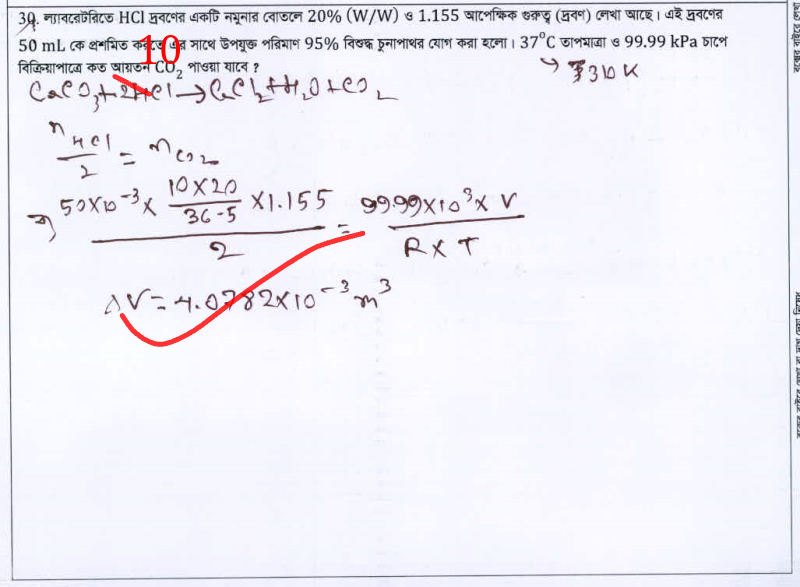 30. ল্যাবরেটরিতে HCl দ্রবণের একটি নমুনার বোতলে 20% (W/W) ও 1.155 আপেক্ষিক গুরুত্ব (দ্রবণ) লেখা আছে। এই দ্রবণের
50 mL কে প্রশমিত করতে এর সাথে উপযুক্ত পরিমাণ 95% বিশুদ্ধ চুনাপাথর যোগ করা হলো। 37°C তাপমাত্রা ও 99.99 kPa চাপে
বিক্রিয়াপাত্রে কত আয়তন CO₂ পাওয়া যাবে ?
↳ 310 K
10
CaCO₃+2HCl→CaCl₂+H₂O+CO₂
n_HCl/2 = n_CO₂
⇒ (50×10⁻³ × (10×20)/36.5 × 1.155)/2 = (99.99×10³× V)/(R×T)
∴ V = 4.0782×10⁻³ m³